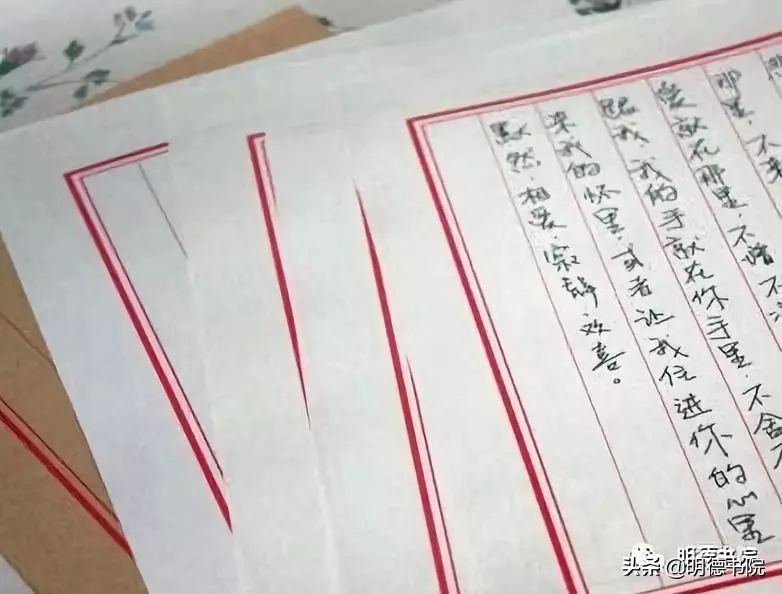 那里,不来
爱就在那里,不增不
跟我,我的手就在你手里,不舍不
来我的怀里,或者让我住进你的心里
默然,相爱,寂静欢喜。
明德书院
头条 @明德书院